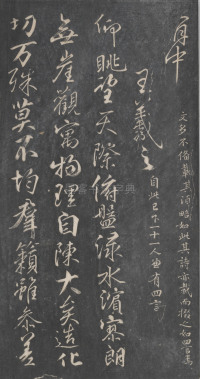 文多不備載其略如此其詩亦裁而掇之如四言焉
王羲之 自此已下十一人有四言
仰眺望天際俯盤淥水濱寥朗
無崖觀寓物理自陳大矣造化
切万殊莫不均羣籟雖參差